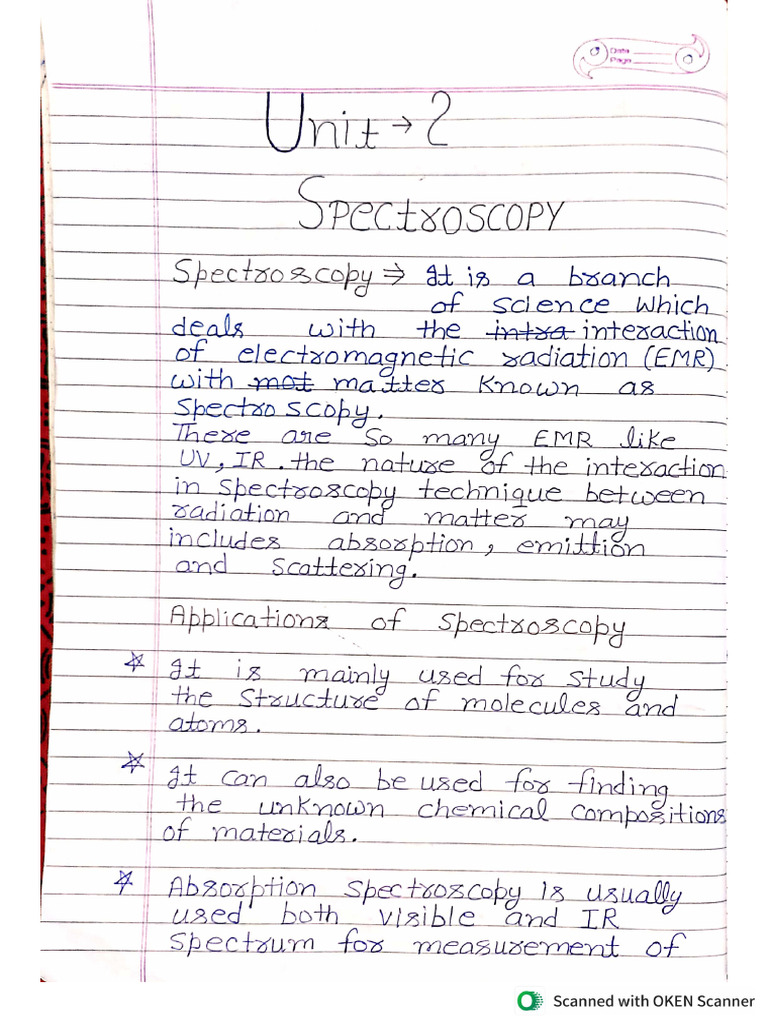 Date
Page
Unit → 2
Spectroscopy
Spectroscopy ⇒ It is a branch
of science which
deals with the intra interaction
of electromagnetic radiation (EMR)
with mot matter known as
spectroscopy.
There are so many EMR like
UV, IR. the nature of the interaction
in spectroscopy technique between
radiation and matter may
includes absorption, emittion
and scattering.
Applications of spectroscopy
☆ It is mainly used for study
the structure of molecules and
atoms.
☆ It can also be used for finding
the unknown chemical compositions
of materials.
☆ Absorption spectroscopy is usually
used both visible and IR
spectrum for measurement of
Scanned with OKEN Scanner